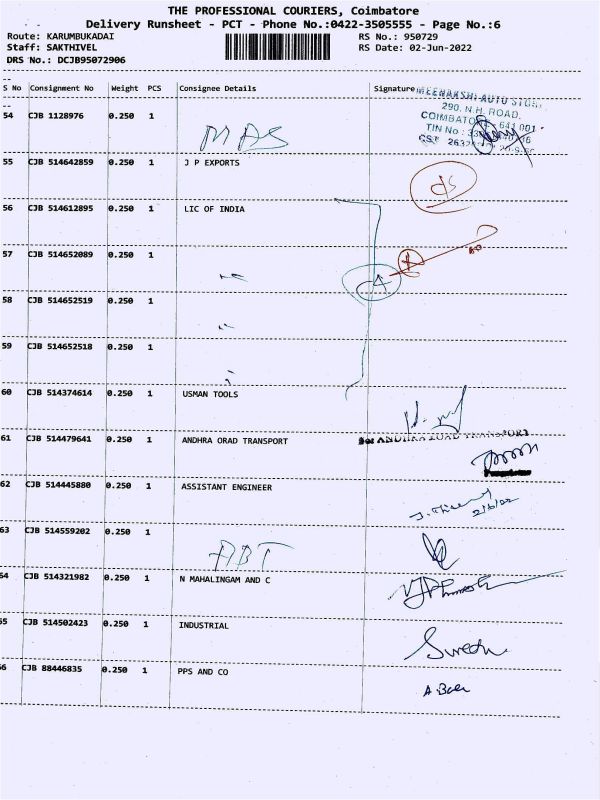 THE PROFESSIONAL COURIERS, Coimbatore
Delivery Runsheet - PCT - Phone No.:0422-3505555 - Page No.:6
Route: KARUMBUKADAI RS No.: 950729
Staff: SAKTHIVEL RS Date: 02-Jun-2022
DRS No.: DCJB95072906
--
S No Consignment No Weight PCS Consignee Details Signature
--
MEENAKSHI AUTO STORE
290, N.H. ROAD,
COIMBATORE - 641 001
TIN No :
54 CJB 1128976 0.250 1 MAS
55 CJB 514642859 0.250 1 J P EXPORTS
56 CJB 514612895 0.250 1 LIC OF INDIA
57 CJB 514652089 0.250 1
58 CJB 514652519 0.250 1 "
59 CJB 514652518 0.250 1
60 CJB 514374614 0.250 1 USMAN TOOLS
61 CJB 514479641 0.250 1 ANDHRA ORAD TRANSPORT For ANDHRA ROAD TRANSPORT
62 CJB 514445880 0.250 1 ASSISTANT ENGINEER
2/6/22
63 CJB 514559202 0.250 1 ABT
64 CJB 514321982 0.250 1 N MAHALINGAM AND C
65 CJB 514502423 0.250 1 INDUSTRIAL Suresh
66 CJB 88446835 0.250 1 PPS AND CO